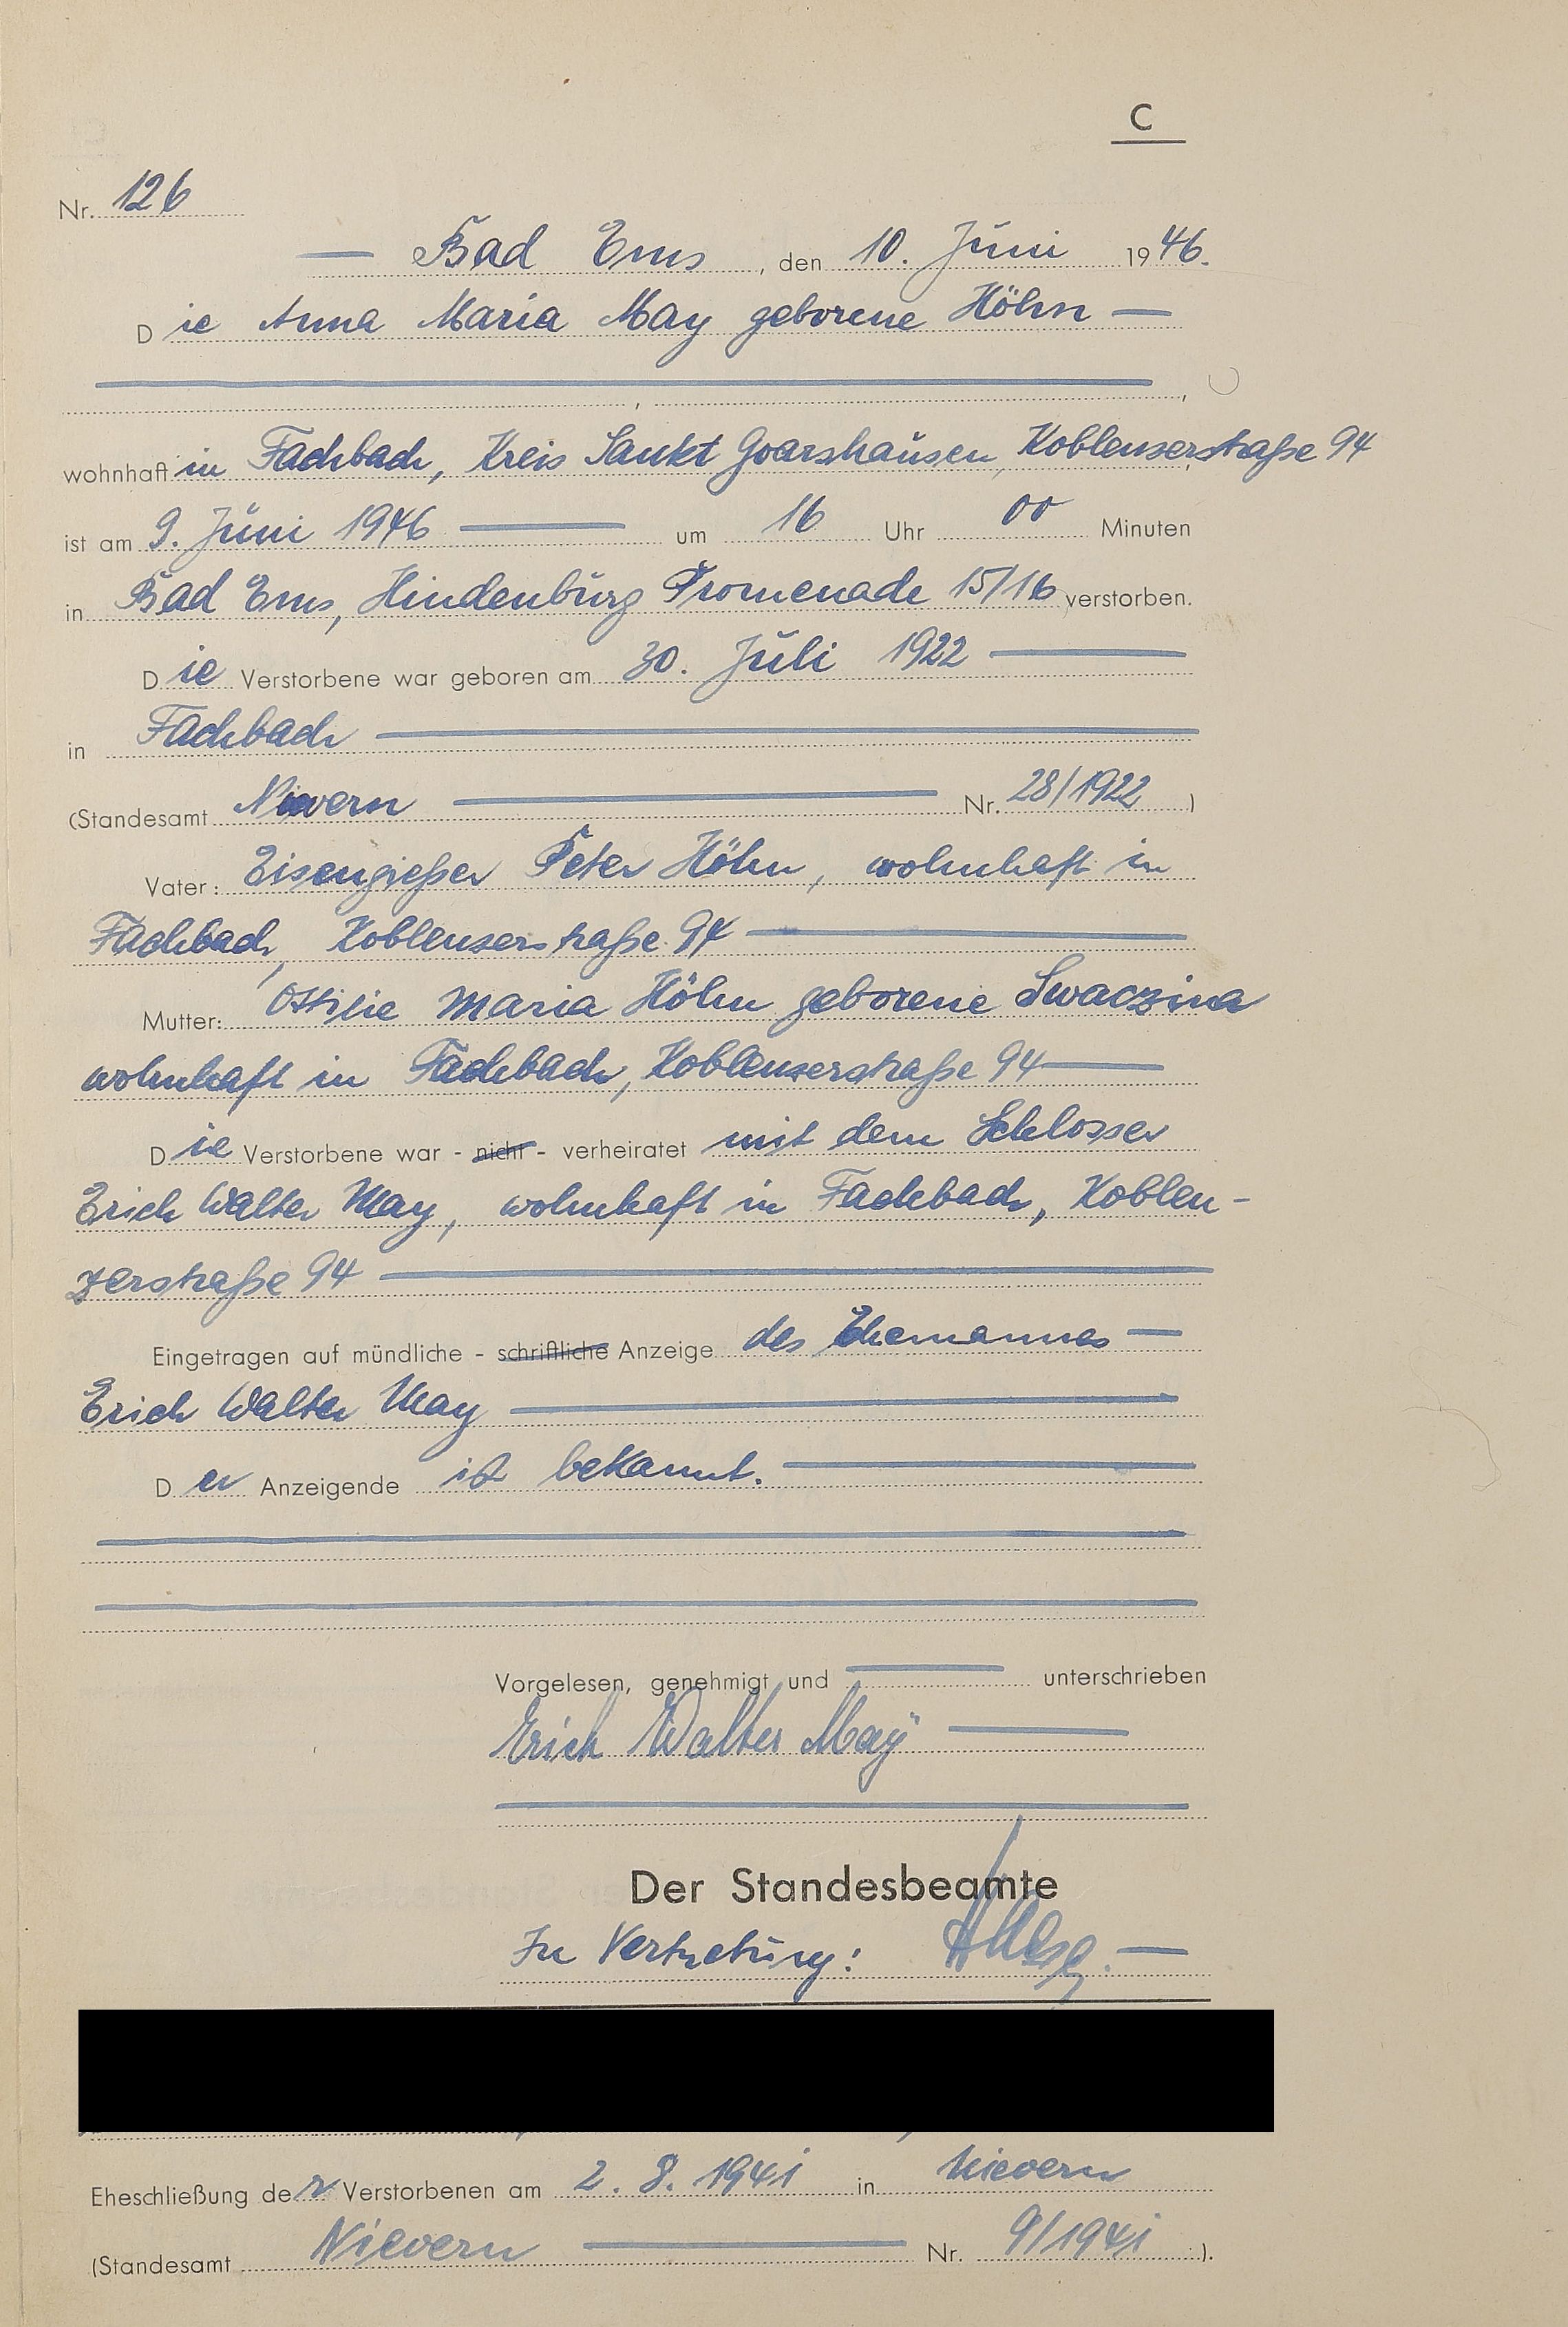 C
Nr. 126
— Bad Ems, den 10. Juni 1946.
Die Anna Maria May geborene Höhn —
, ,
wohnhaft in Fachbach, Kreis Sankt Goarshausen, Koblenzerstraße 94
ist am 9. Juni 1946 — um 16 Uhr 00 Minuten
in Bad Ems, Hindenburg Promenade 15/16 verstorben.
Die Verstorbene war geboren am 30. Juli 1922 —
in Fachbach —
(Standesamt Nievern — Nr. 28/1922)
Vater: Eisengießer Peter Höhn, wohnhaft in
Fachbach, Koblenzerstraße 94 —
Mutter: Ottilie Maria Höhn geborene Swaczina
wohnhaft in Fachbach, Koblenzerstraße 94 —
Die Verstorbene war - nicht - verheiratet mit dem Schlosser
Erich Walter May, wohnhaft in Fachbach, Koblen-
zerstraße 94 —
Eingetragen auf mündliche - schriftliche Anzeige des Ehemannes —
Erich Walter May —
Der Anzeigende ist bekannt. —
Vorgelesen, genehmigt und — unterschrieben
Erich Walter May —
Der Standesbeamte
In Vertretung: —
Eheschließung der Verstorbenen am 2. 8. 1941 in Nievern
(Standesamt Nievern — Nr. 9/1941).